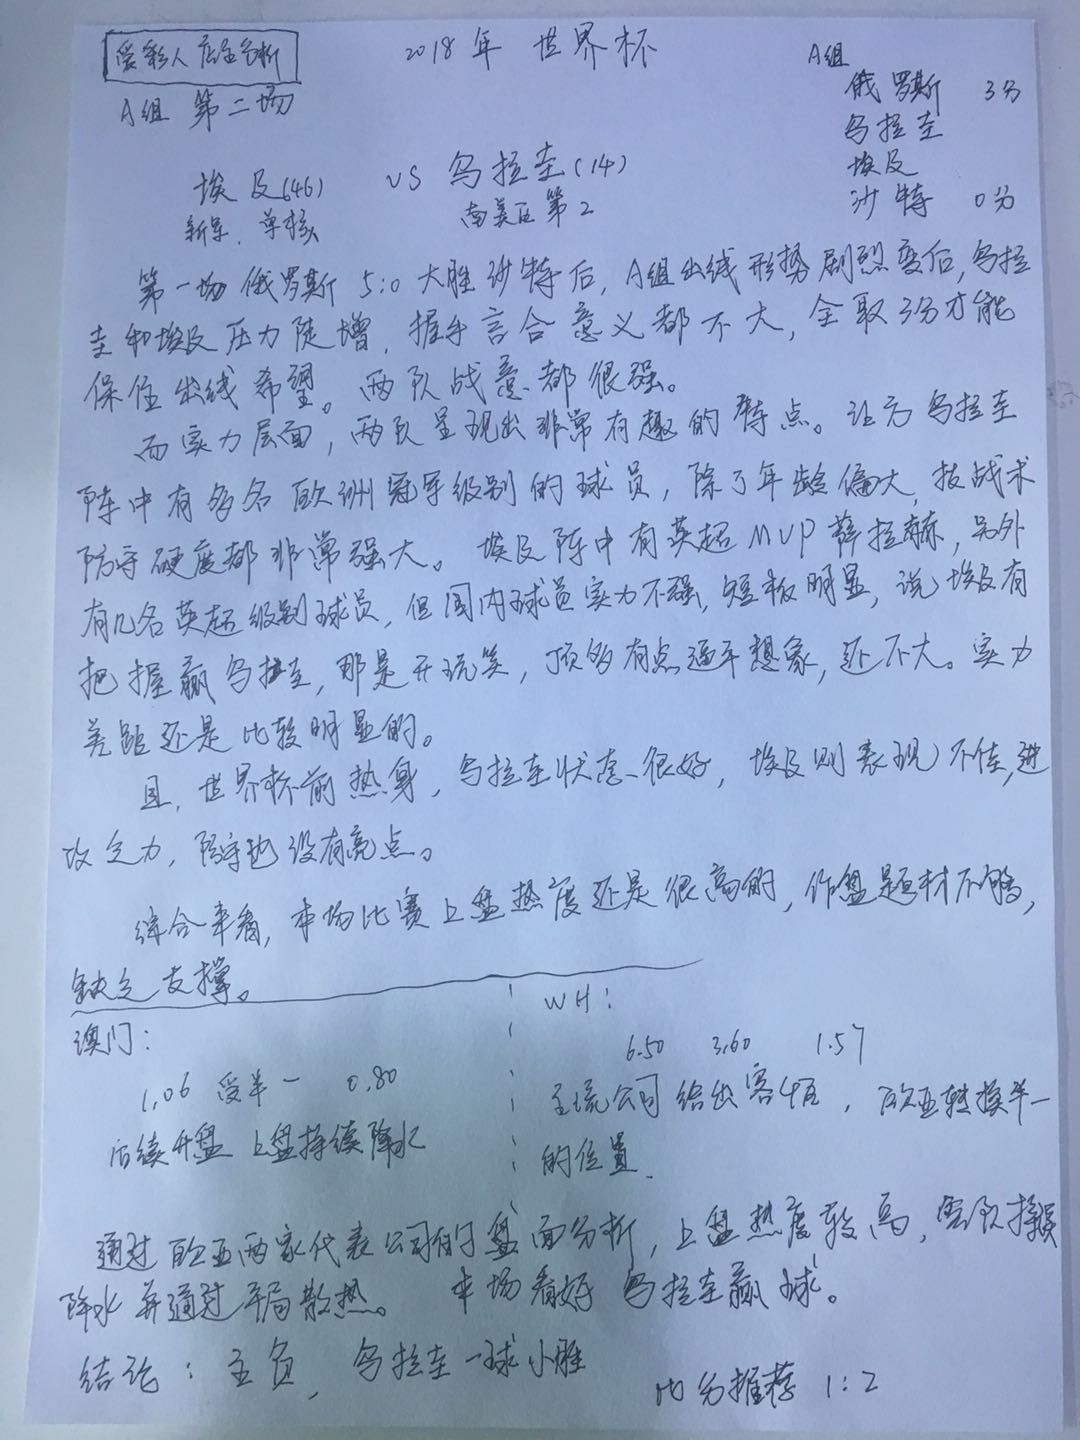 爱彩人店主分析
2018年 世界杯
A组 第二场
A组
俄罗斯 3分
乌拉圭
埃及
沙特 0分
埃及(46) VS 乌拉圭(14)
新军、单核 南美区第2
第一场俄罗斯5:0大胜沙特后,A组出线形势剧烈变后,乌拉
圭和埃及压力陡增,握手言合意义都不大,全取3分才能
保住出线希望。两队战意都很强。
而实力层面,两队呈现出非常有趣的特点。让方乌拉圭
阵中有多名欧洲冠军级别的球员,除了年龄偏大,技战术
防守硬度都非常强大。埃及阵中有英超MVP萨拉赫,另外
有几名英超级别球员,但国内球员实力不强,短板明显,说埃及有
把握赢乌拉圭,那是开玩笑,顶多有点逼平想象,还不大。实力
差距还是比较明显的。
且,世界杯前热身,乌拉圭状态很好,埃及则表现不佳,进
攻乏力,防守也没有亮点。
综合来看,本场比赛上盘热度还是很高的,作盘题材不够,
缺乏支撑。
澳门:
1.06 受半一 0.80
后续开盘 上盘持续降水
WH:
6.50 3.60 1.57
主流公司给出客低,欧亚转换半一
的位置.
通过欧亚两家代表公司的盘面分析,上盘热度较高,客队持续
降水并通过平局散热。 本场看好乌拉圭赢球。
结论:主负,乌拉圭一球小胜
比分推荐 1:2